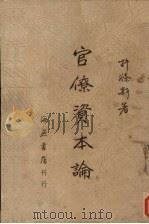 許滌新著
官僚資本論
南𠰥書店刊行